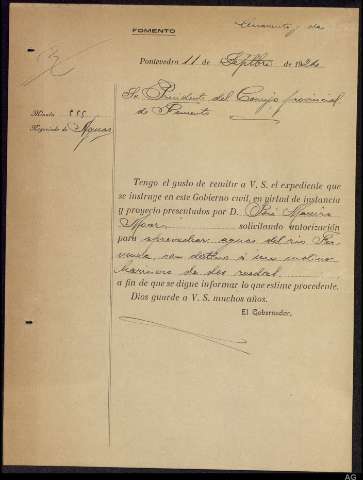 FOMENTO
Pontevedra 11 de Septbre de 19
Sr. Presidente del Consejo provincial
de Fomento
Minuta
Negociado de Aguas
Tengo el gusto de remitir a V. S. el expediente que
se instruye en este Gobierno civil, en virtud de instancia
y proyecto presentados por D. José Moreira
solicitando autorización
para aprovechar aguas del río
con destino a un molino
harinero de dos ruedas
a fin de que se digne informar lo que estime procedente.
Dios guarde a V. S. muchos años.
El Gobernador,
AG